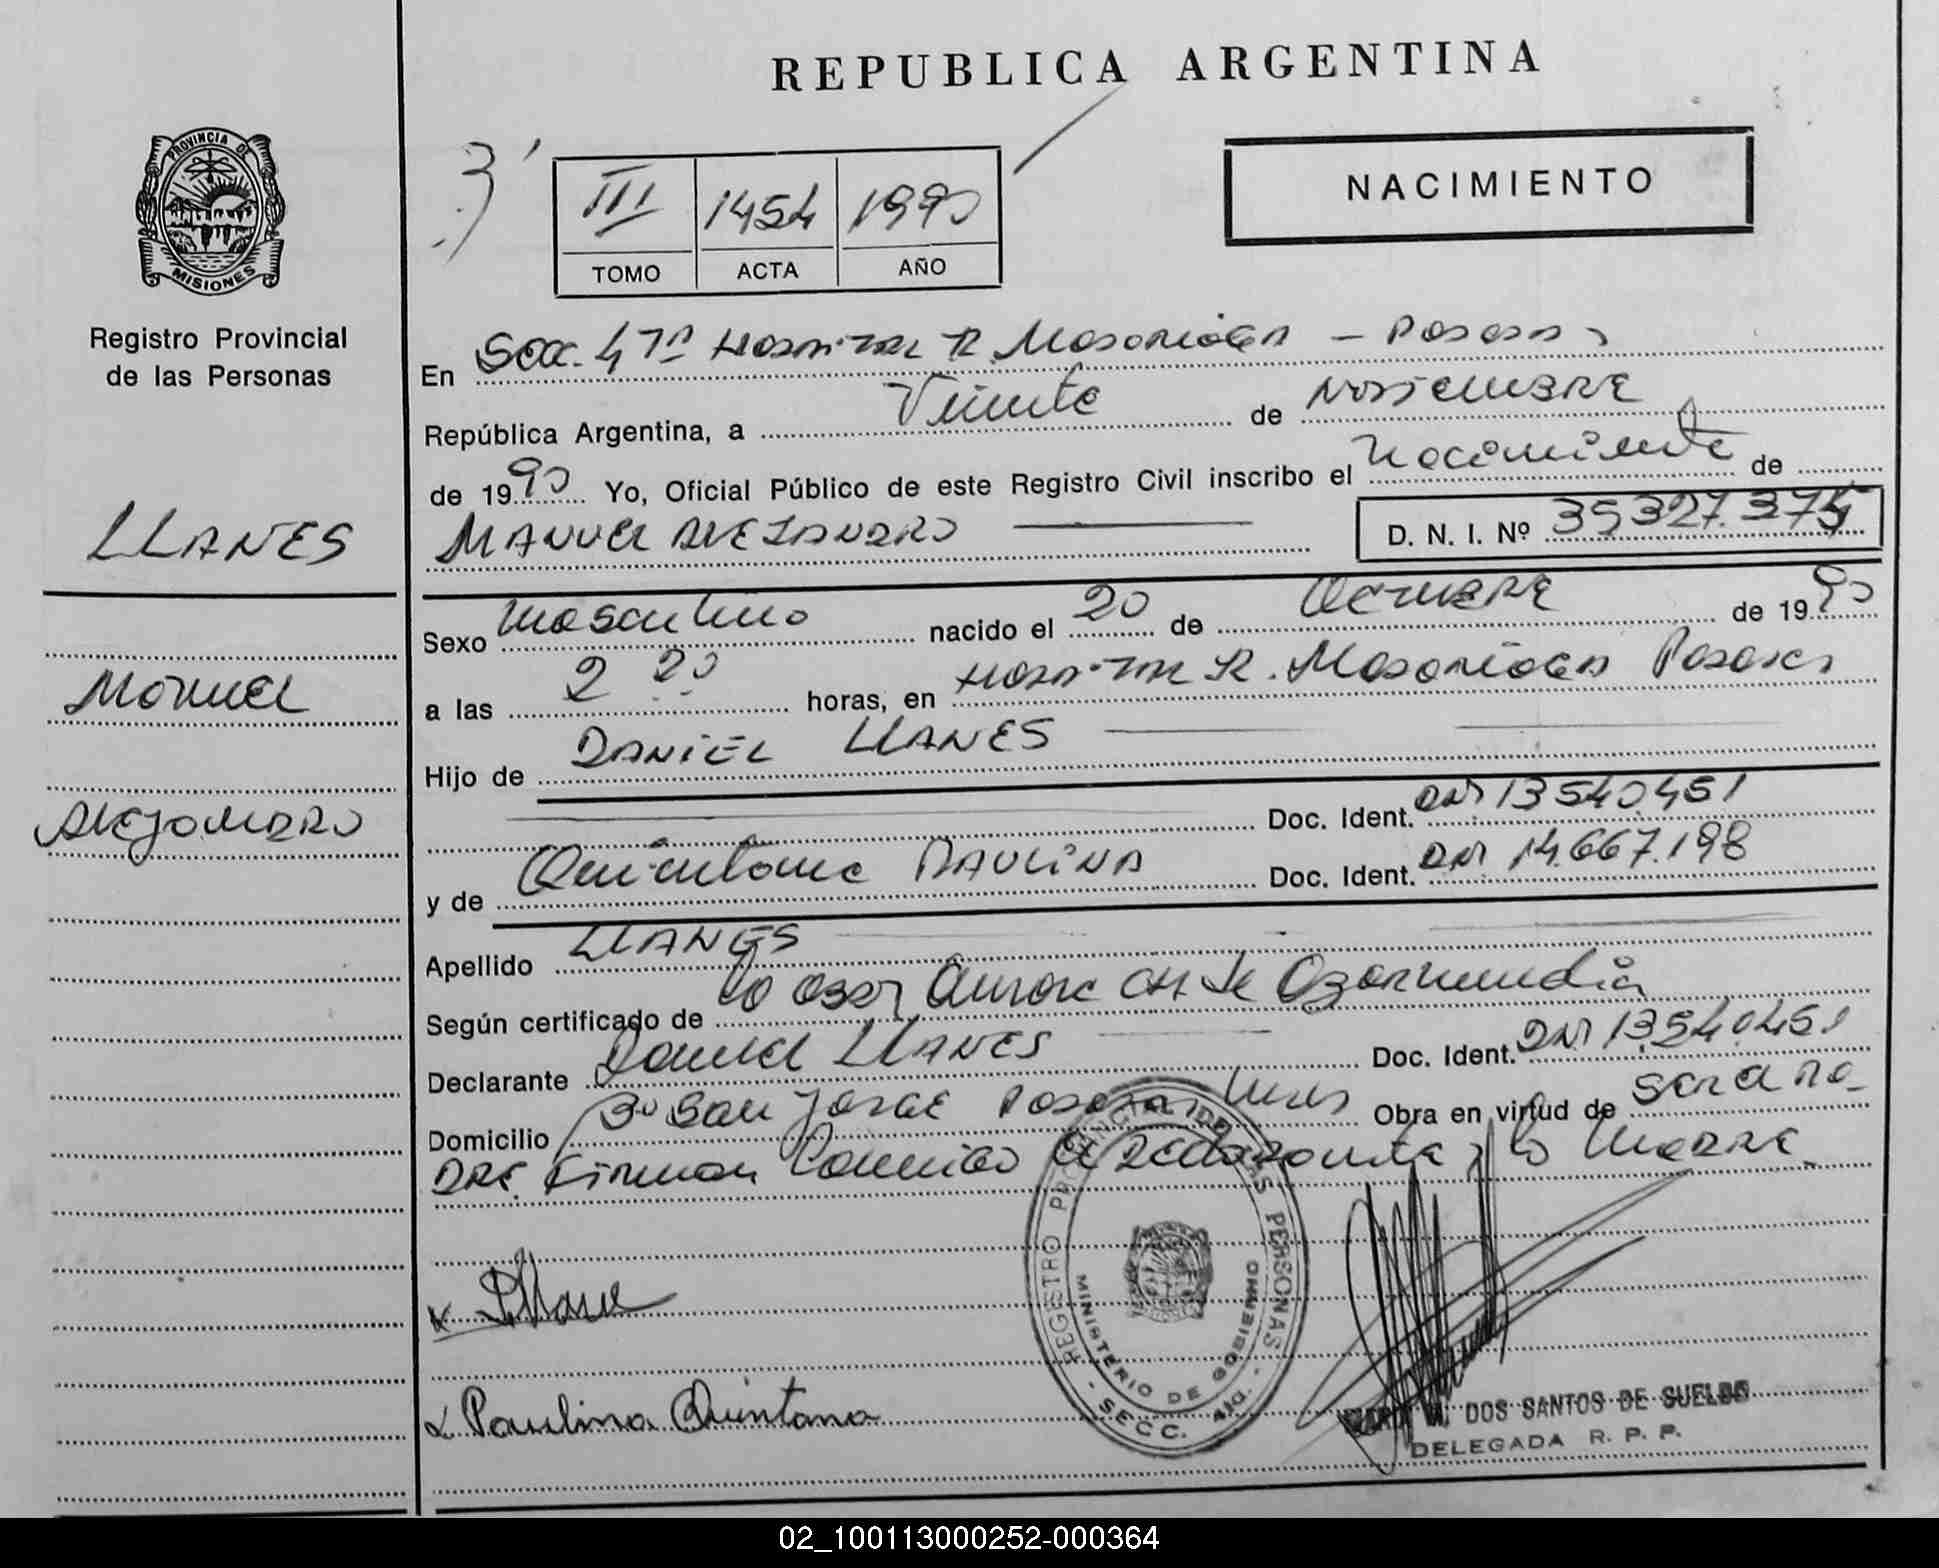 REPUBLICA ARGENTINA
PROVINCIA DE
MISIONES
Registro Provincial
de las Personas
III 1454 1990
TOMO ACTA AÑO
NACIMIENTO
En Secc. 4ta Hospital R. Madariaga - Posadas
República Argentina, a Veinte de Noviembre
de 1990 Yo, Oficial Público de este Registro Civil inscribo el Nacimiento de
LLANES
MANUEL ALEJANDRO D. N. I. Nº 35.327.375
Sexo Masculino nacido el 20 de Octubre de 1990
Manuel
a las 2 20 horas, en Hospital R. Madariaga Posadas
Hijo de DANIEL LLANES
Alejandro
Doc. Ident. DNI 13540451
y de Quintana PAULINA Doc. Ident. DNI 14.667.198
Apellido LLANES
Según certificado de la Aurora de
Declarante Daniel LLANES Doc. Ident. DNI 13540.451
Domicilio Bº San JORGE Posadas Mnes Obra en virtud de
Firman Conmigo el Declarante y la Madre
REGISTRO PROVINCIAL DE LAS PERSONAS
MINISTERIO DE GOBIERNO
- SECC. 4ta. -
Paulina Quintana
DOS SANTOS DE SUELDO
DELEGADA R. P. P.
02_100113000252-000364